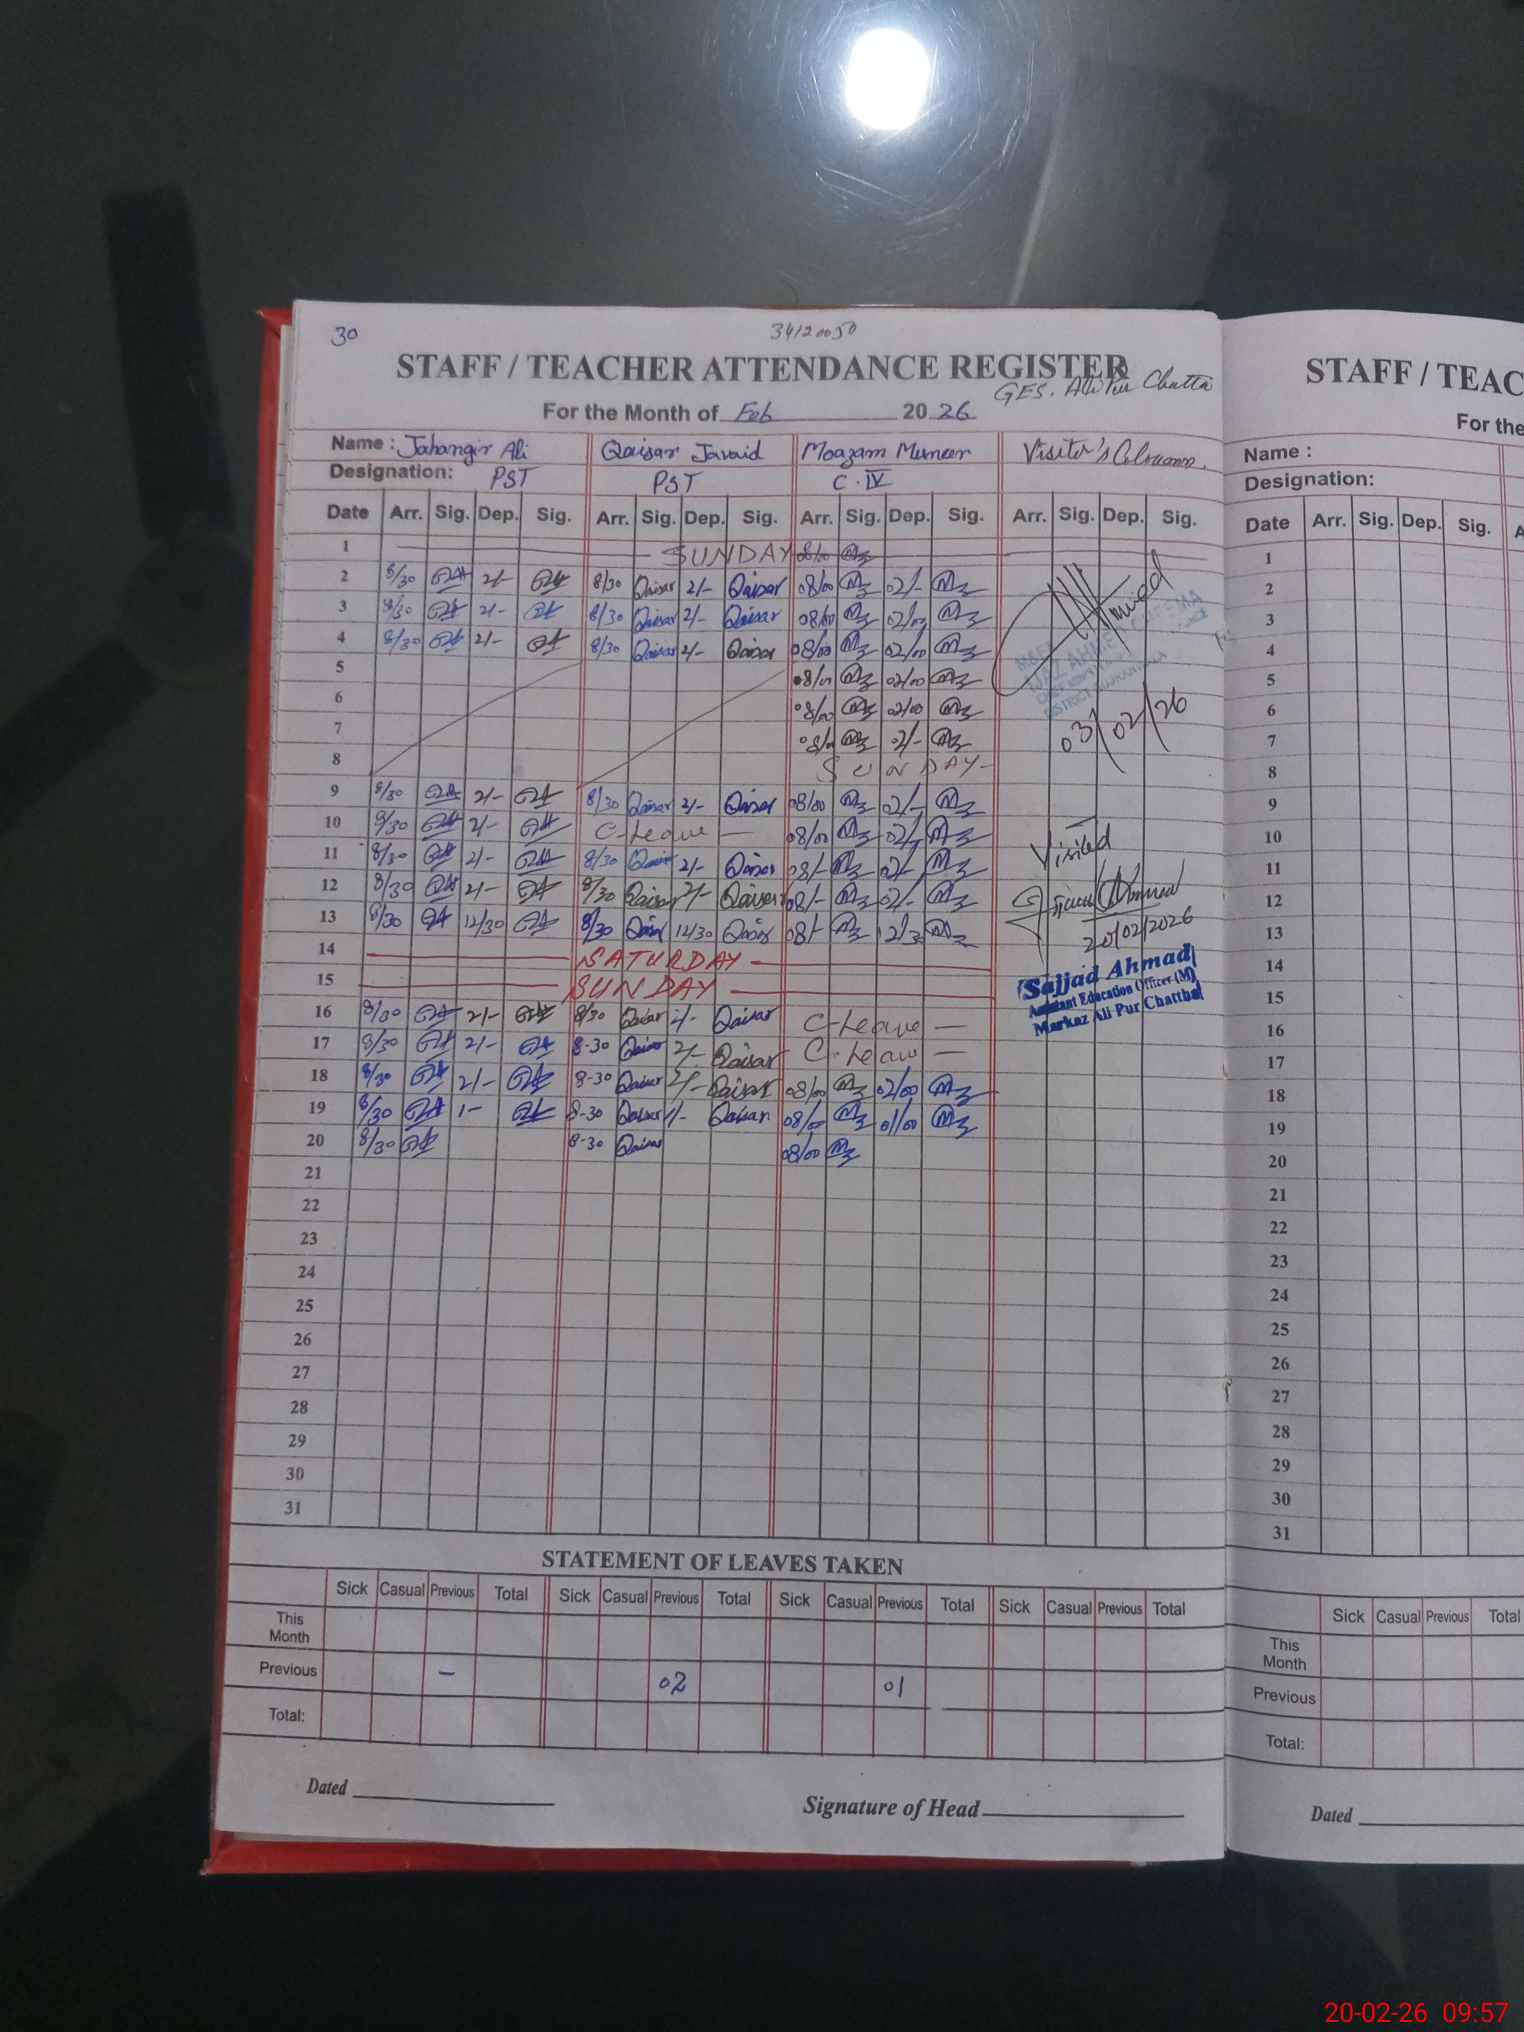 30
34120050
STAFF / TEACHER ATTENDANCE REGISTER
GES. Ali Pur Chatta
For the Month of Feb 2026
Name : Jahangir Ali Qaisar Javaid Moazam Muneer Visitor's Column.
Designation: PST PST C.IV
Date Arr. Sig. Dep. Sig. Arr. Sig. Dep. Sig. Arr. Sig. Dep. Sig. Arr. Sig. Dep. Sig.
1 SUNDAY 08/00
2 8/30 2/- 8/30 Qaisar 2/- Qaisar 08/00 02/-
3 8/30 2/- 8/30 Qaisar 2/- Qaisar 08/00 02/00
4 8/30 2/- 8/30 Qaisar 2/- Qaisar 08/00 02/00
5 08/00 02/00
6 08/00 02/00
7 08/00 02/-
03/02/26
8 SUNDAY
9 8/30 2/- 8/30 Qaisar 2/- Qaisar 08/00 02/-
10 8/30 2/- C-Leave 08/00 02/-
Visited
11 8/30 2/- 8/30 Qaisar 2/- Qaisar 08/- 02/-
12 8/30 2/- 8/30 Qaisar 2/- Qaisar 08/- 02/-
13 8/30 12/30 8/30 Qaisar 12/30 Qaisar 08/- 12/3
20/02/2026
14 SATURDAY
15 SUNDAY
Sajjad Ahmad
Assistant Education Officer (M)
Markaz Ali Pur Chattha
16 8/30 2/- 8/30 Qaisar 2/- Qaisar C-Leave
17 8/30 2/- 8-30 Qaisar 2/- Qaisar C-Leave
18 8/30 2/- 8-30 Qaisar 2/- Qaisar 08/00 02/00
19 8/30 1- 8-30 Qaisar 1/- Qaisar 08/00 01/00
20 8/30 8-30 Qaisar 08/00
21
22
23
24
25
26
27
28
29
30
31
STATEMENT OF LEAVES TAKEN
Sick Casual Previous Total Sick Casual Previous Total Sick Casual Previous Total Sick Casual Previous Total
This Month
Previous - 02 01
Total:
Dated
Signature of Head
STAFF / TEAC
For the
Name :
Designation:
Date Arr. Sig. Dep. Sig. A
1
2
3
4
5
6
7
8
9
10
11
12
13
14
15
16
17
18
19
20
21
22
23
24
25
26
27
28
29
30
31
Sick Casual Previous Total
This Month
Previous
Total:
Dated
20-02-26 09:57